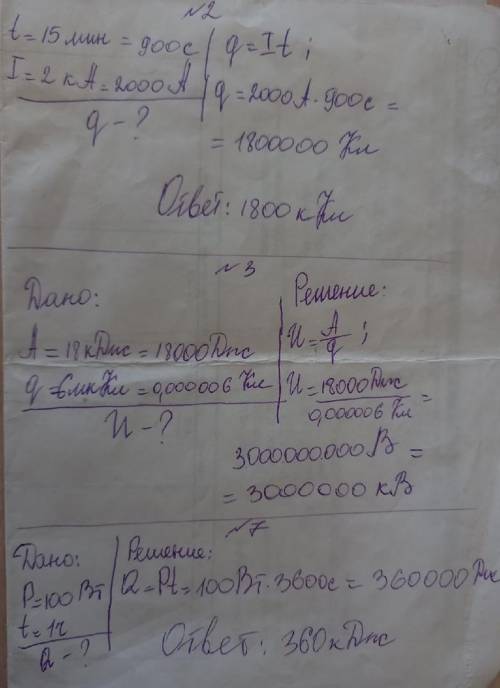 №2
t = 15 мин = 900с | q = It ;
I = 2 кА = 2000 А | q = 2000А · 900с =
q - ?
= 1800000 Кл
Ответ: 1800 кКл
№3
Дано:
A = 18 кДж = 18000 Дж
q = 6 мкКл = 0,000006 Кл
U - ?
Решение:
U = A/q ;
U = 18000 Дж / 0,000006 Кл =
3000000000 В =
= 3000000 кВ
№7
Дано:
P = 100 Вт
t = 1ч
Q - ?
Решение:
Q = Pt = 100Вт · 3600с = 360000 Дж
Ответ: 360 кДж